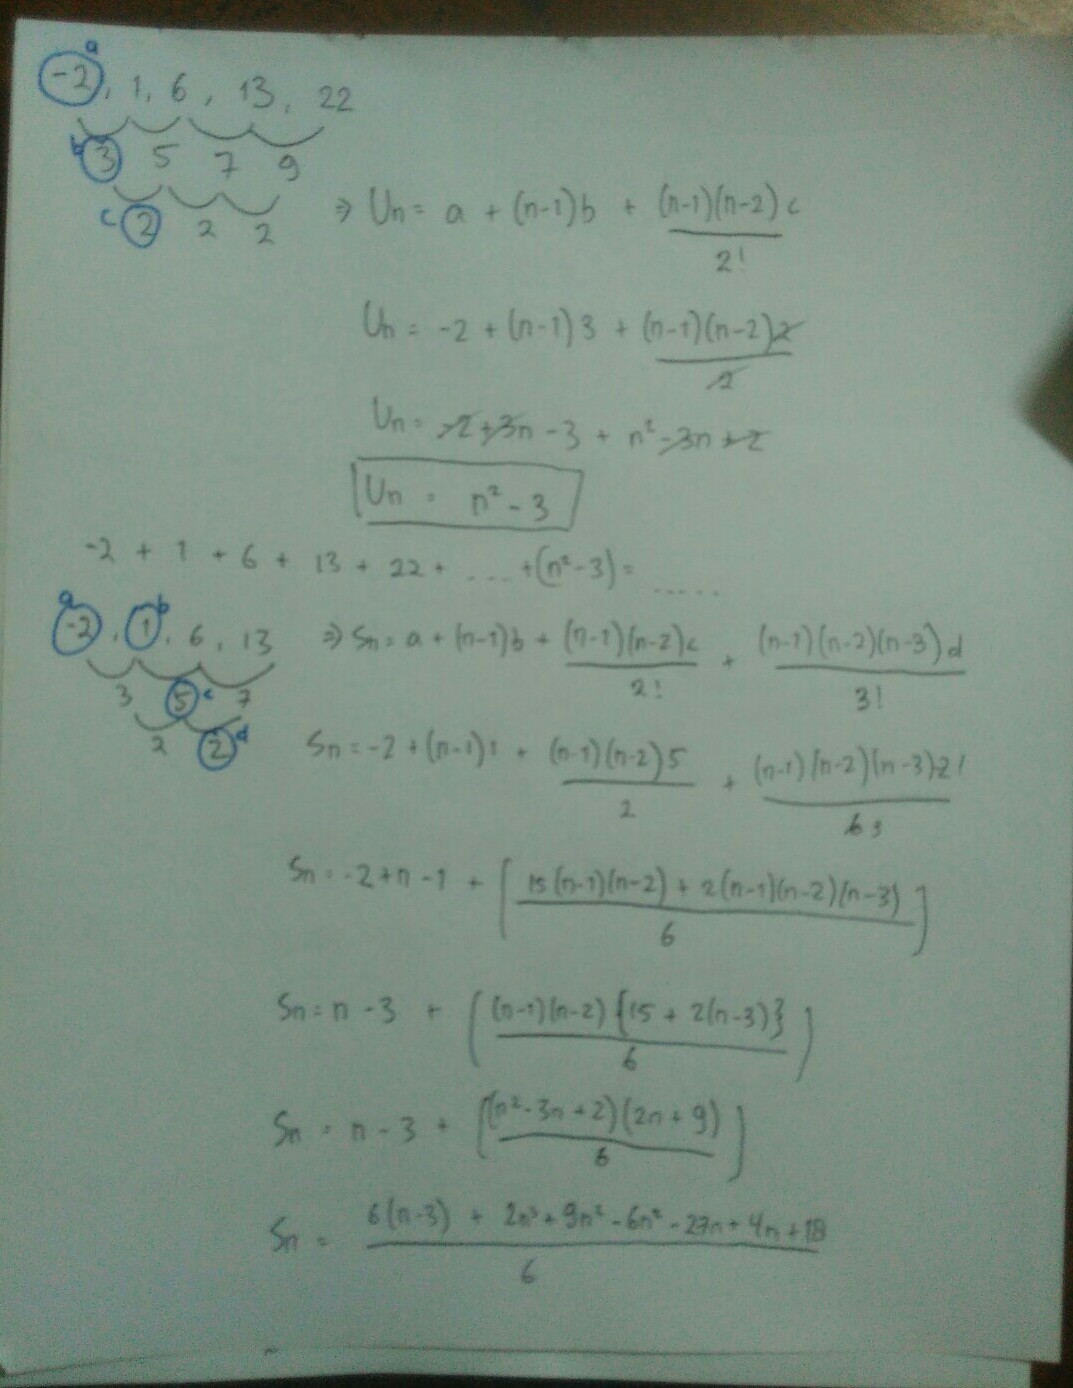 a
-2, 1, 6, 13, 22
b 3 5 7 9
c 2 2 2 ⇒ Un = a + (n-1)b + (n-1)(n-2)c / 2!
Un = -2 + (n-1)3 + (n-1)(n-2)2 / 2
Un = -2+3n - 3 + n² - 3n + 2
Un = n² - 3
-2 + 1 + 6 + 13 + 22 + .... + (n² - 3) = .....
a b
-2, 1, 6, 13 ⇒ Sn = a + (n-1)b + (n-1)(n-2)c / 2! + (n-1)(n-2)(n-3)d / 3!
3 5 c 7
2 2 d Sn = -2 + (n-1)1 + (n-1)(n-2)5 / 2 + (n-1)(n-2)(n-3)2 1 / 6 3
Sn = -2+n -1 + [15(n-1)(n-2) + 2(n-1)(n-2)(n-3) / 6]
Sn = n - 3 + [(n-1)(n-2){15 + 2(n-3)} / 6]
Sn = n - 3 + [(n² - 3n + 2)(2n + 9) / 6]
Sn = 6(n-3) + 2n³ + 9n² - 6n² - 27n + 4n + 18 / 6